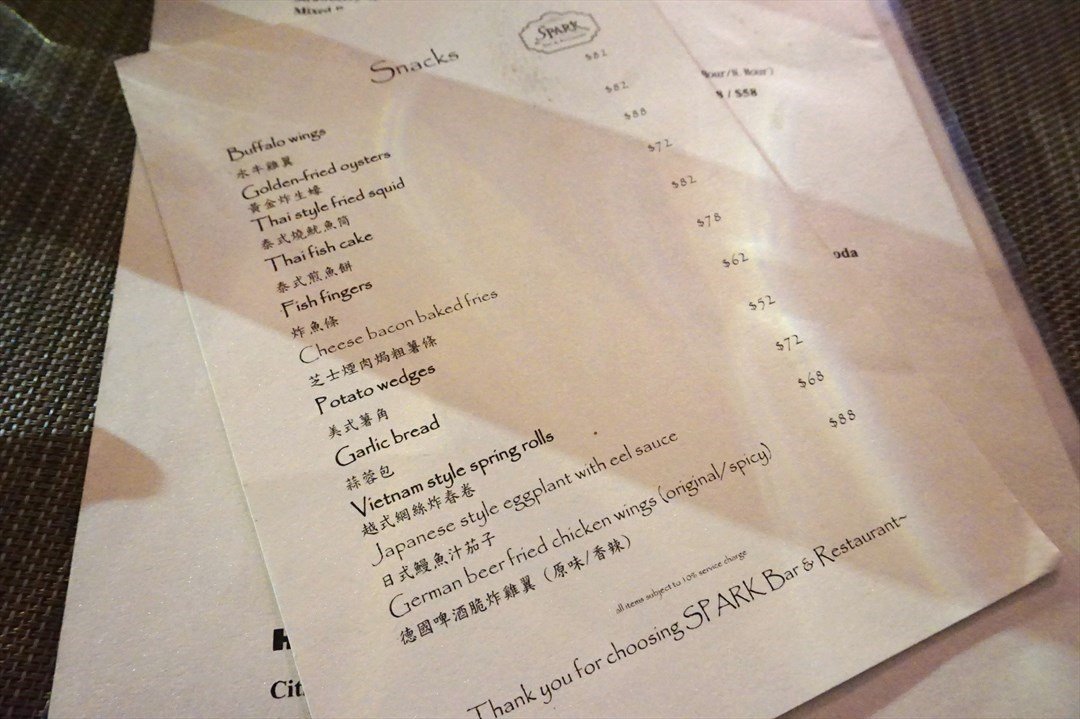 Mixed
SPARK
Snacks
Buffalo wings $82
水牛雞翼
Golden-fried oysters $82
黃金炸生蠔
Thai style fried squid $88
泰式燒魷魚筒
Thai fish cake $72
泰式煎魚餅
Fish fingers $82
炸魚條
Cheese bacon baked fries $78
芝士煙肉焗粗薯條
Potato wedges $62
美式薯角
Garlic bread $52
蒜蓉包
Vietnam style spring rolls $72
越式網絲炸春卷
Japanese style eggplant with eel sauce $68
日式鰻魚汁茄子
German beer fried chicken wings (original/spicy) $88
德國啤酒脆炸雞翼 (原味/香辣)
all items subject to 10% service charge
Thank you for choosing SPARK Bar & Restaurant~
Hour/N Hour)
8 / $58
oda
H
Cit